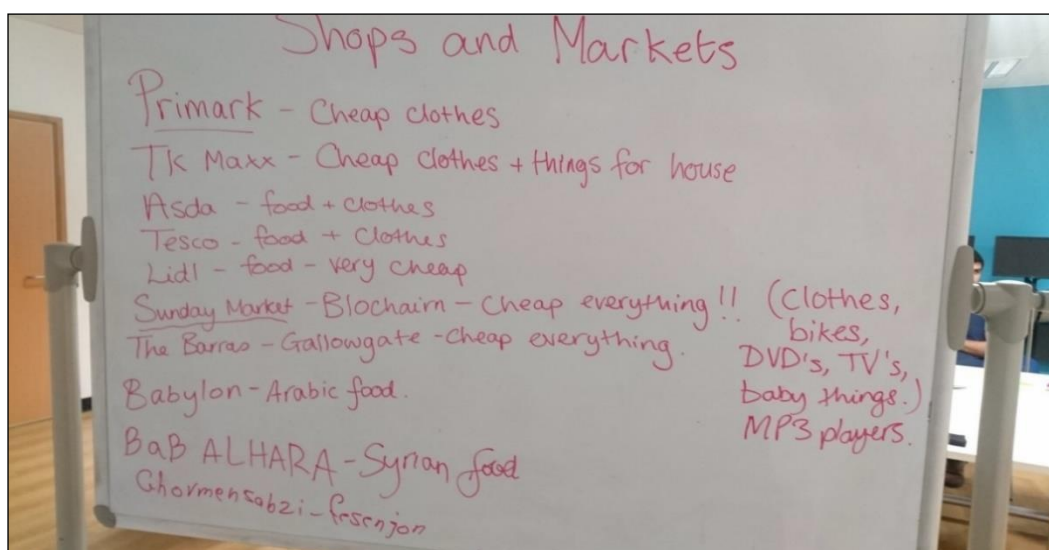 Shops and Markets
Primark - Cheap clothes
TK Maxx - Cheap clothes + things for house
Asda - food + clothes
Tesco - food + clothes
Lidl - food - very cheap
Sunday Market - Blochairn - Cheap everything!! (clothes,
bikes,
DVD's, TV's,
baby things.)
MP3 players.
The Barras - Gallowgate - cheap everything.
Babylon - Arabic food.
BaB ALHARA - Syrian food
Ghormensabzi - fesenjon